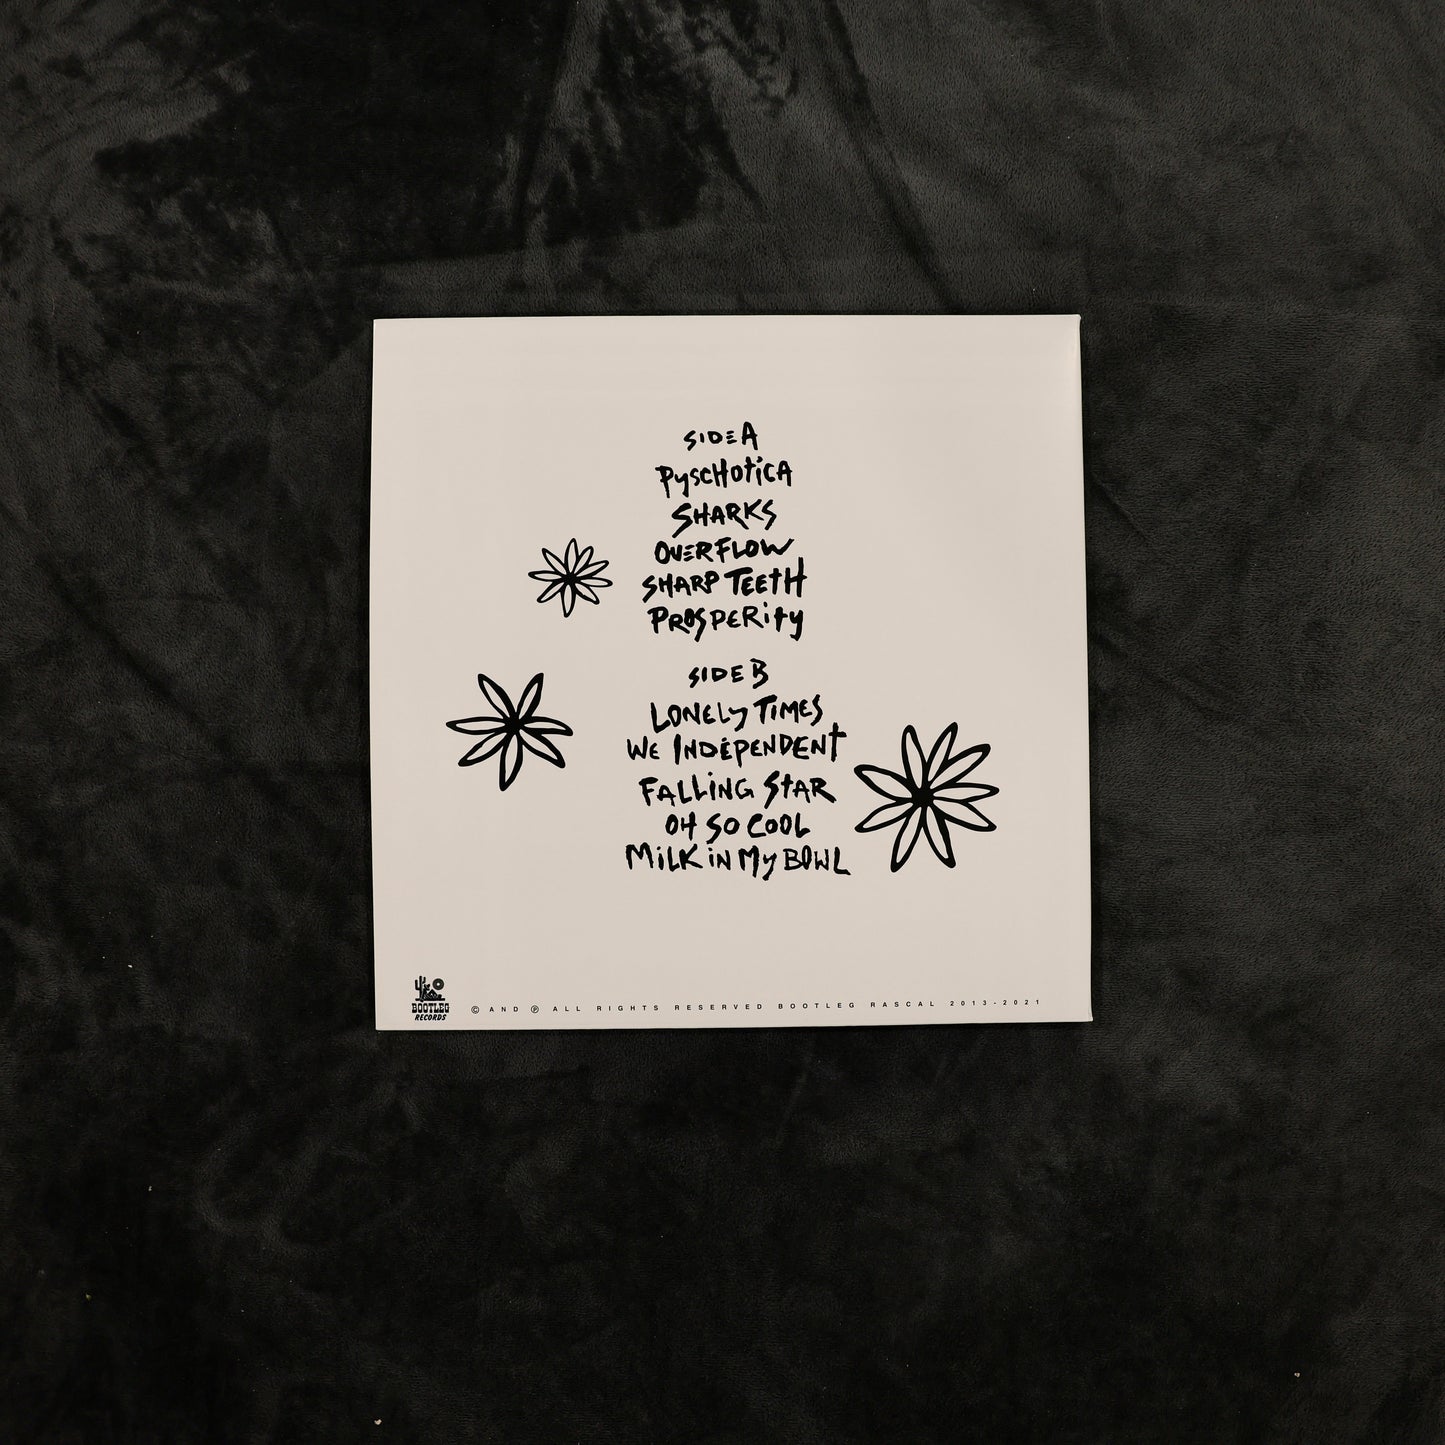 SIDE A
PYSCHOTICA
SHARKS
OVERFLOW
SHARP TEETH
PROSPERITY
SIDE B
LONELY TIMES
WE INDEPENDENT
FALLING STAR
OH SO COOL
MILK IN MY BOWL
BOOTLEG
RECORDS
© AND ℗ ALL RIGHTS RESERVED BOOTLEG RASCAL 2013-2021